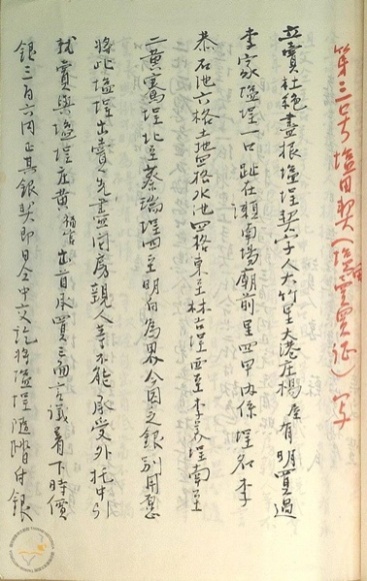 第三号塩田契(塩埕買証)写
立賣杜絕盡根塩埕契字人大竹里大港庄楊在有明買過
李家塩埕一口趾在瀨南場廟前呈四甲內係埕名李
恭石池六格土池四格水池四格東至林言埕西至李家埕南至
二黃騫埕北至蔡瑞埕四至明白為界今因乏銀別用愿
將此塩埕出賣先盡问房親人等不能承受外托中引
就賣與塩埕庄黃出首承買三面言議着下時價
銀三百六円正其銀契即日仝中交訖將塩埕隨踏付銀